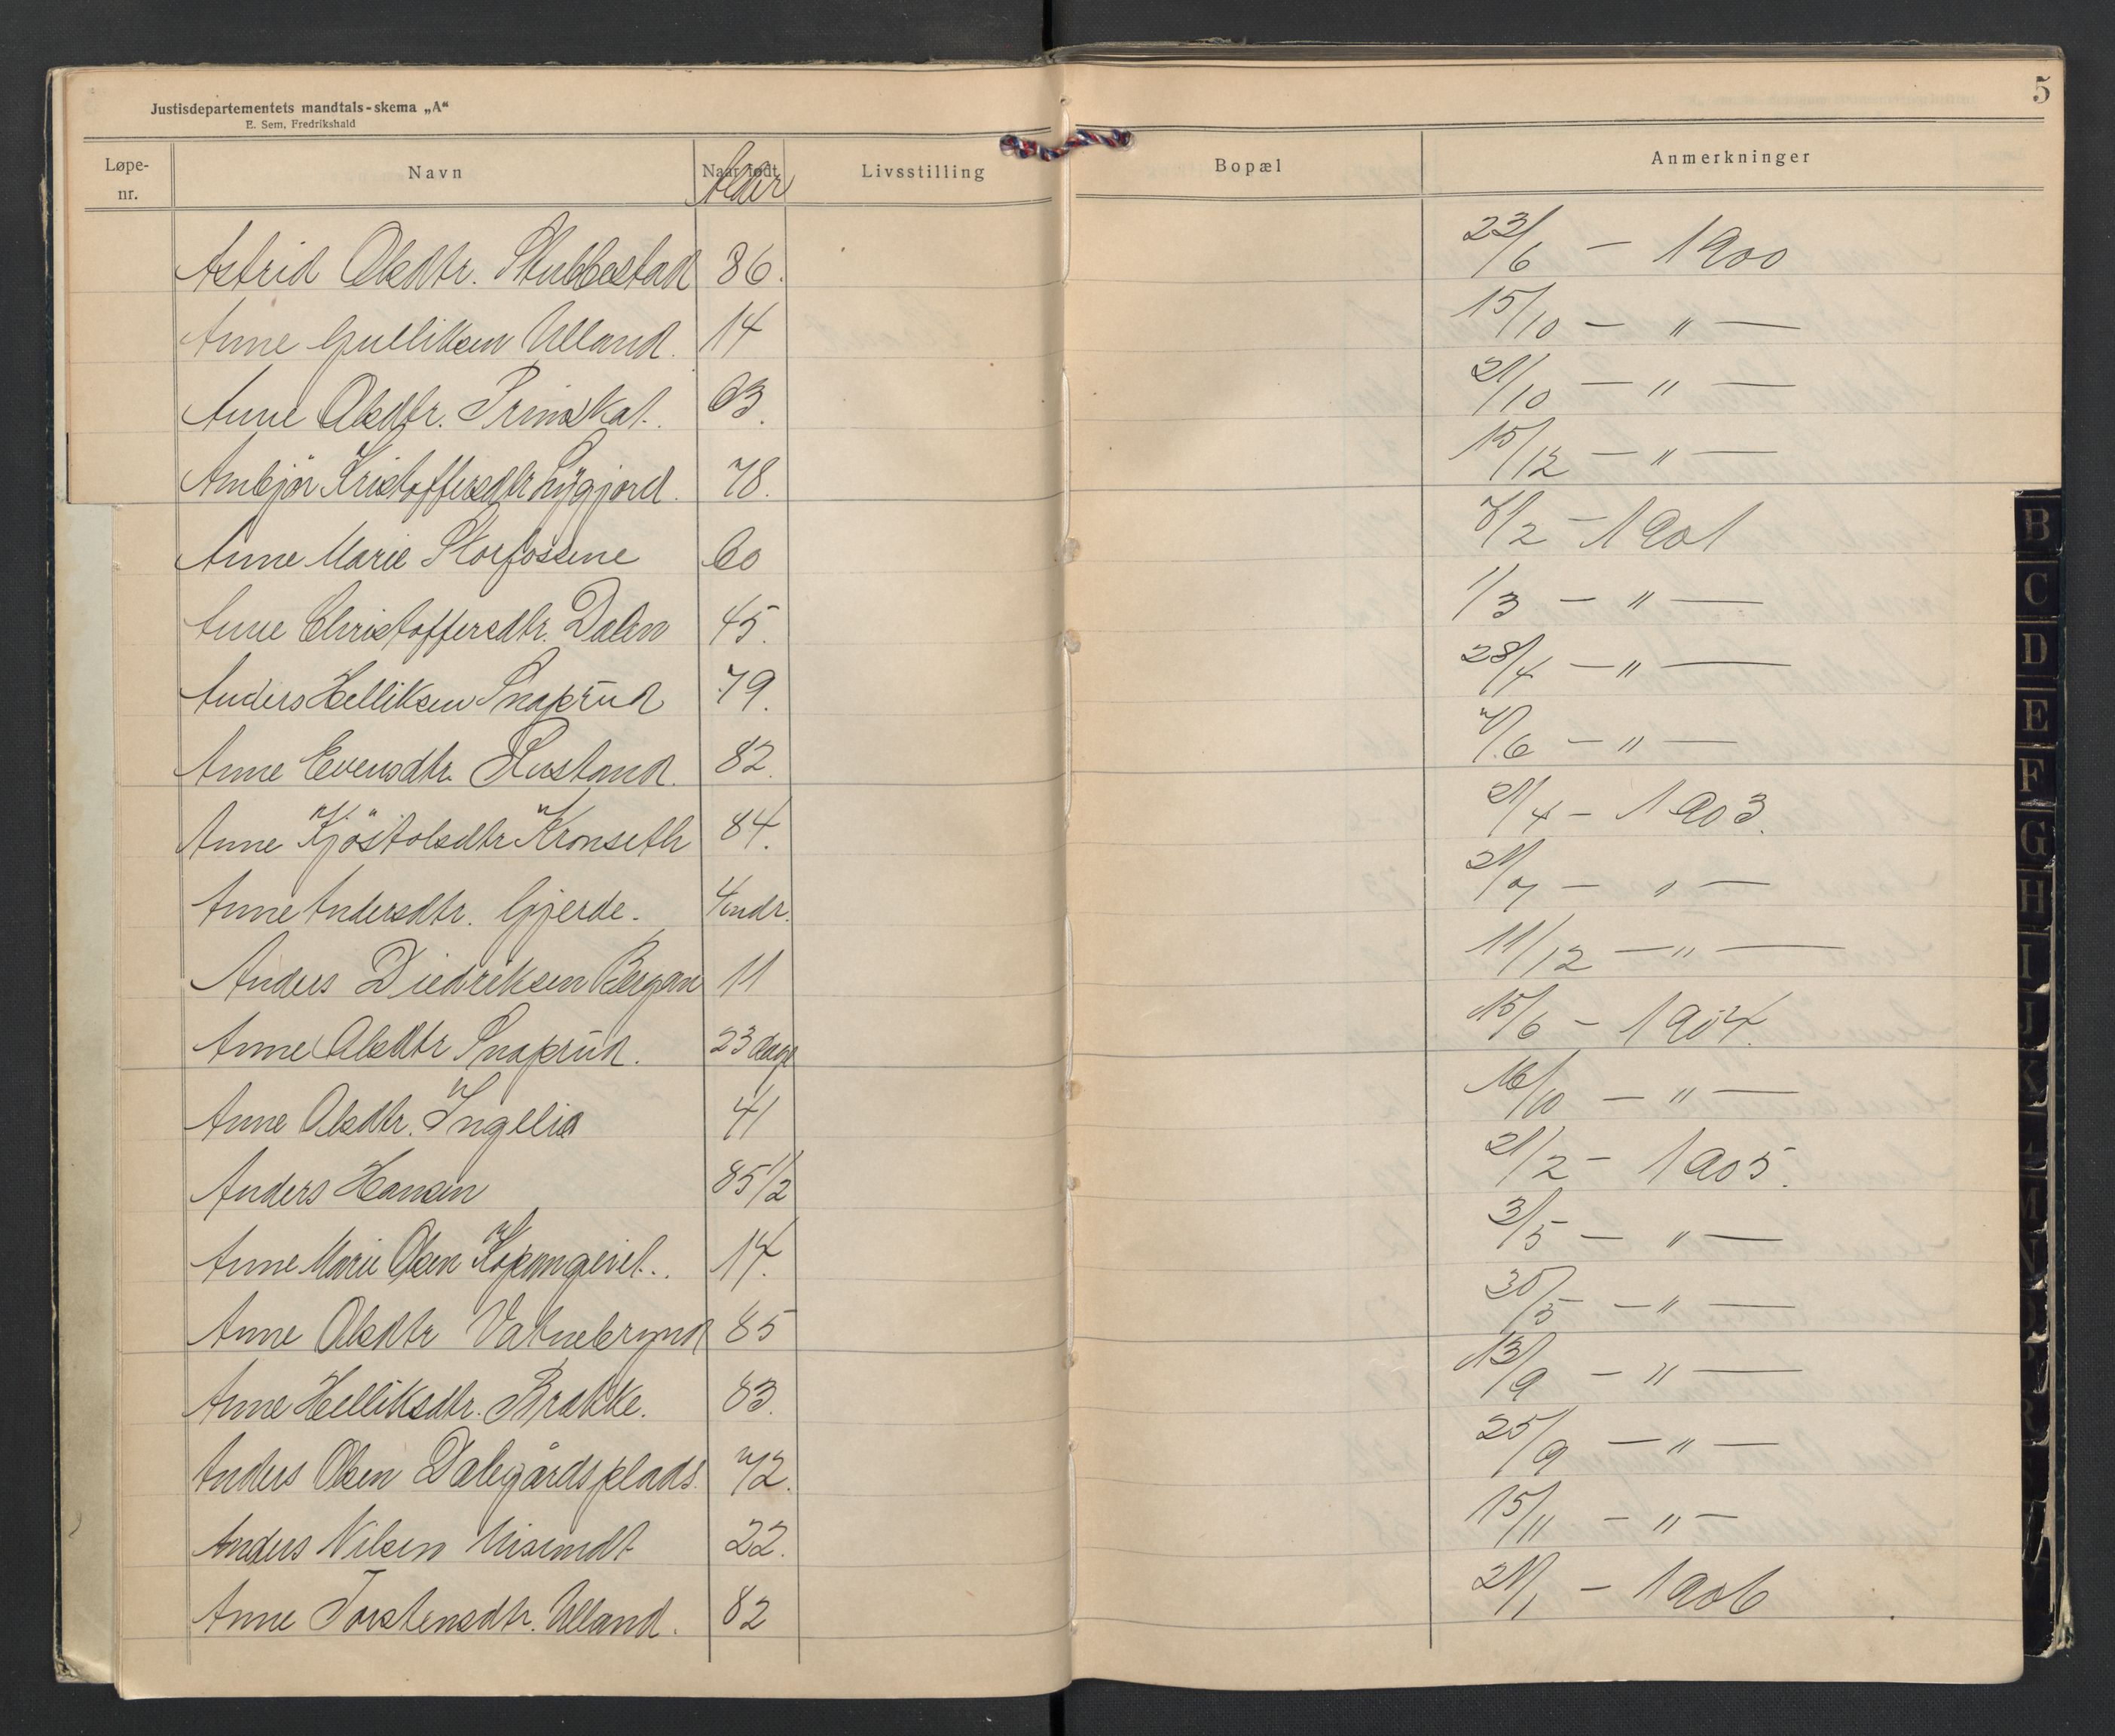 5
Justisdepartementets mandtals-skema „A“
E. Sem, Fredrikshald
Løpe-nr. Navn Naar født Alder Livsstilling Bopæl Anmerkninger
Astrid Olsdtr. Stubbestad 86. 23/6 — 1900
Anne Gulliksen Ulland. 14 15/10 — " —
Anne Olsdtr. Prinskat. 63. 21/10 — " —
Ambjör Kristoffersdtr Lygjord. 78. 15/12 — " —
Anne Marie Storfossene 60 7/2 — 1901
Anne Christoffersdtr. Dalen 45. 1/3 — " —
Anders Helliksen Snaprud 79. 28/4 — " —
Anne Evensdtr. Rustand. 82. 7/6 — " —
Anne Kjöstolsdtr Kronseth 84. 21/4 — 1903.
Anne Andersdtr. Gjerde. 4 mdr. 21/7 — " —
Anders Diedriksen Bergan 11 11/12 — " —
Anne Olsdtr Snaprud. 23 dage 15/6 — 1904.
Anne Olsdtr. Ingelia 41 16/10 — " —
Anders Hansen 85 1/2 21/2 — 1905.
Anne Marie Olsen 14. 3/5 — " —
Anne Olsdtr Vatnebrynd 85 30/5 — " —
Anne Helliksdtr. Brække. 83. 13/9 — " —
Anders Olsen Dalegårdsplads. 72. 25/9 — " —
Anders Nilsen 22. 15/11 — " —
Anne Torstensdtr. Ulland. 82 21/1 — 1906
B
C
D
E
F
G
H
I
J
K
L
M
N